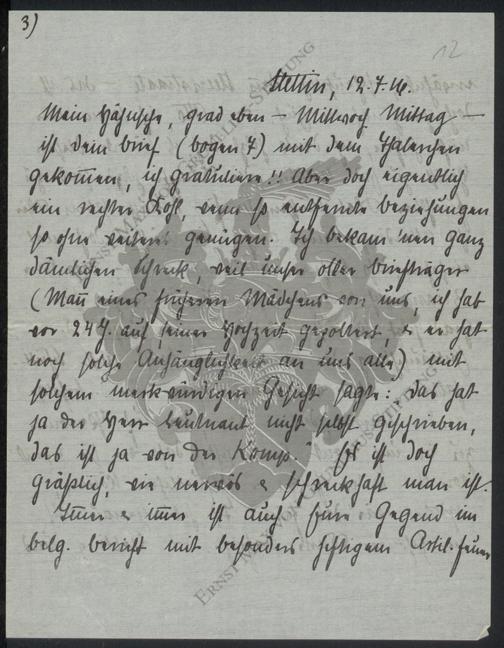 3)
12
Stettin, 12.7.16.
Mein Hähnsche, grad eben – Mittwoch Mittag –
ist dein brief (bogen 7) mit dem
gekommen, ich gratuliere!! Aber doch eigentlich
ein rechter Kohl, wenn so entfernte beziehungen
so ohne weiteres genügen. Ich bekam 'nen ganz
dämlichen Schreck, weil unser oller briefträger
(Mann eines früheren Mädchens von uns, ich hab
vor 24 J. auf seiner Hochzeit gepoltert, & er hat
noch solche Anhänglichkeit an uns alle) mit
solchem merkwürdigen Gesicht sagte: das hat
ja der Herr Leutnant nicht selbst geschrieben,
das ist ja von der Komp.! Es ist doch
gräßlich, wie nervös & schreckhaft man ist.
Immer & immer ist auch Eure Gegend im
belg. bericht mit besonders heftigem Artil.feuer
ERNST
STIFTUNG